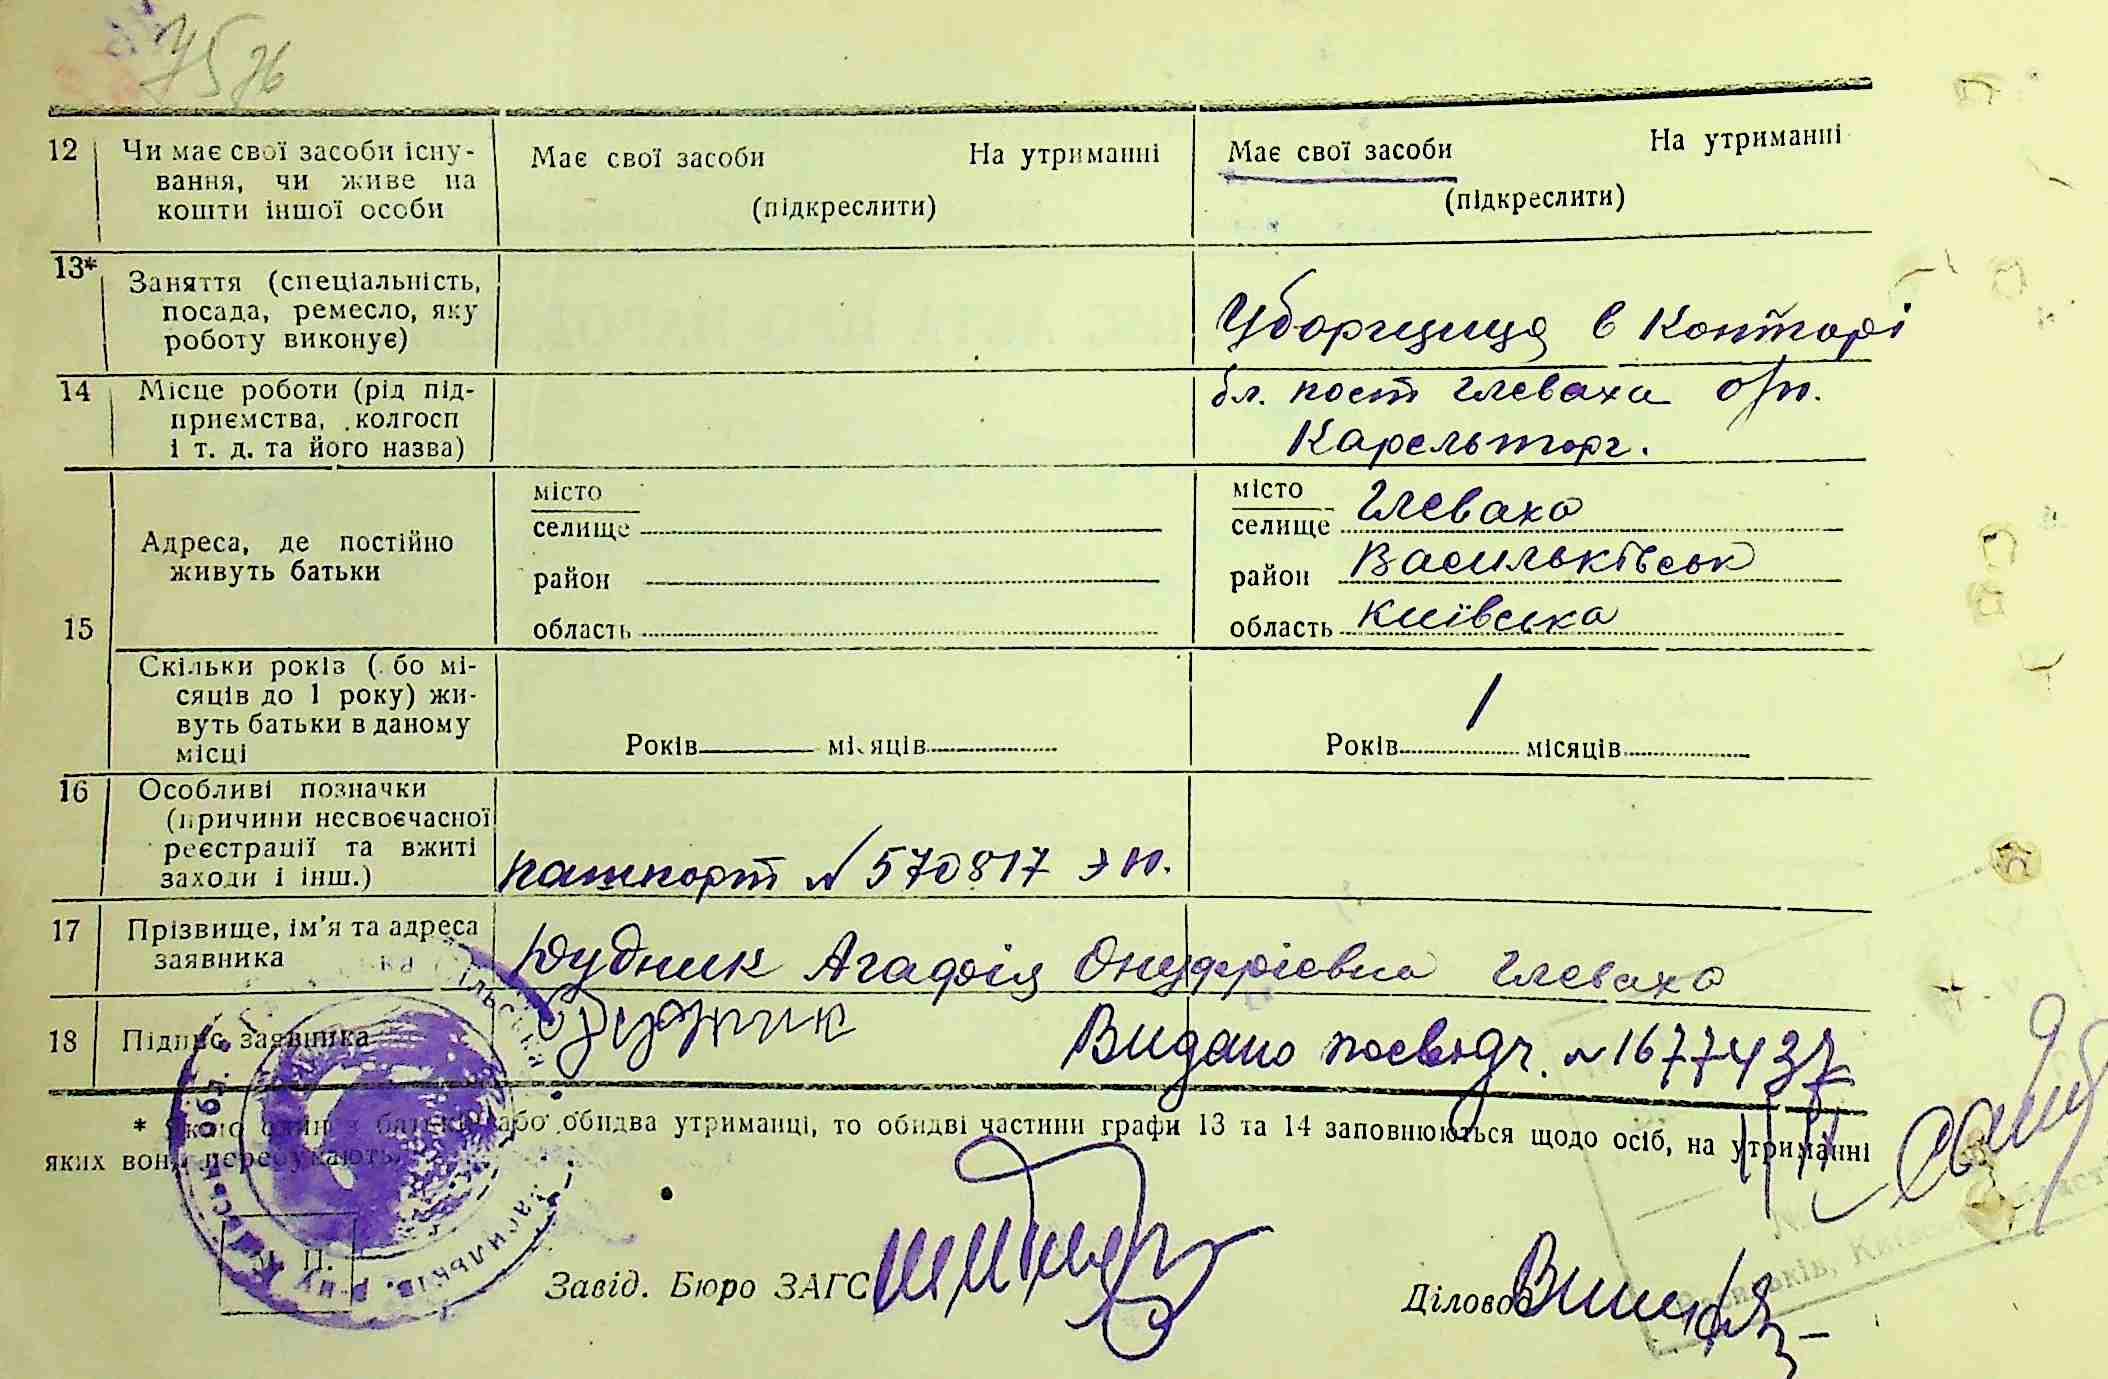 7576
12 Чи має свої засоби існу-
вання, чи живе на
кошти іншої особи
Має свої засоби На утриманні
(підкреслити)
Має свої засоби На утриманні
(підкреслити)
13* Заняття (спеціальність,
посада, ремесло, яку
роботу виконує)
Уборщиця в конторі
14 Місце роботи (рід під-
приємства, колгосп
і т. д. та його назва)
бл. пост Глеваха
Карельторг.
15 Адреса, де постійно
живуть батьки
місто
селище
район
область
місто
селище Глеваха
район Васильківськ
область Київська
Скільки років (або мі-
сяців до 1 року) жи-
вуть батьки в даному
місці
Років місяців
Років 1 місяців
16 Особливі позначки
(причини несвоєчасної
реєстрації та вжиті
заходи і інш.)
пашпорт № 570817 ЭЮ.
17 Прізвище, ім'я та адреса
заявника
Дудник Агафія Онуфріевна Глеваха
18 Підпис заявника
Дудник
Видано посвідч. № 1677437
* Якщо один з батьків або обидва утриманці, то обидві частини графи 13 та 14 заповнюються щодо осіб, на утриманні
яких вони перебувають.
М. П.
Завід. Бюро ЗАГС
Діловод